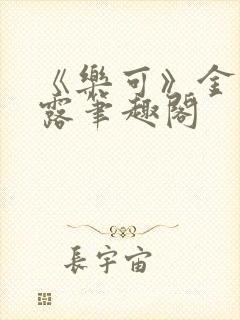 《樂可》金
露筆趣閣
長宇宙